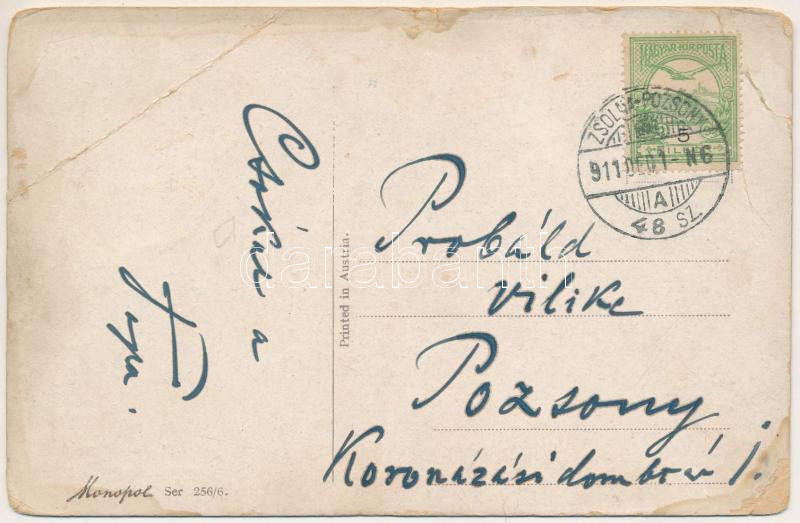 Csókol a
Papa.
Printed in Austria.
Monopol Ser 256/6.
MAGYAR KIR. POSTA
5
ZSOLNA-POZSONY
911 DEC 01 - N6
A
48 SZ.
Probáld
Vilike
Pozsony
Koronázási domb u 1.
darabanth